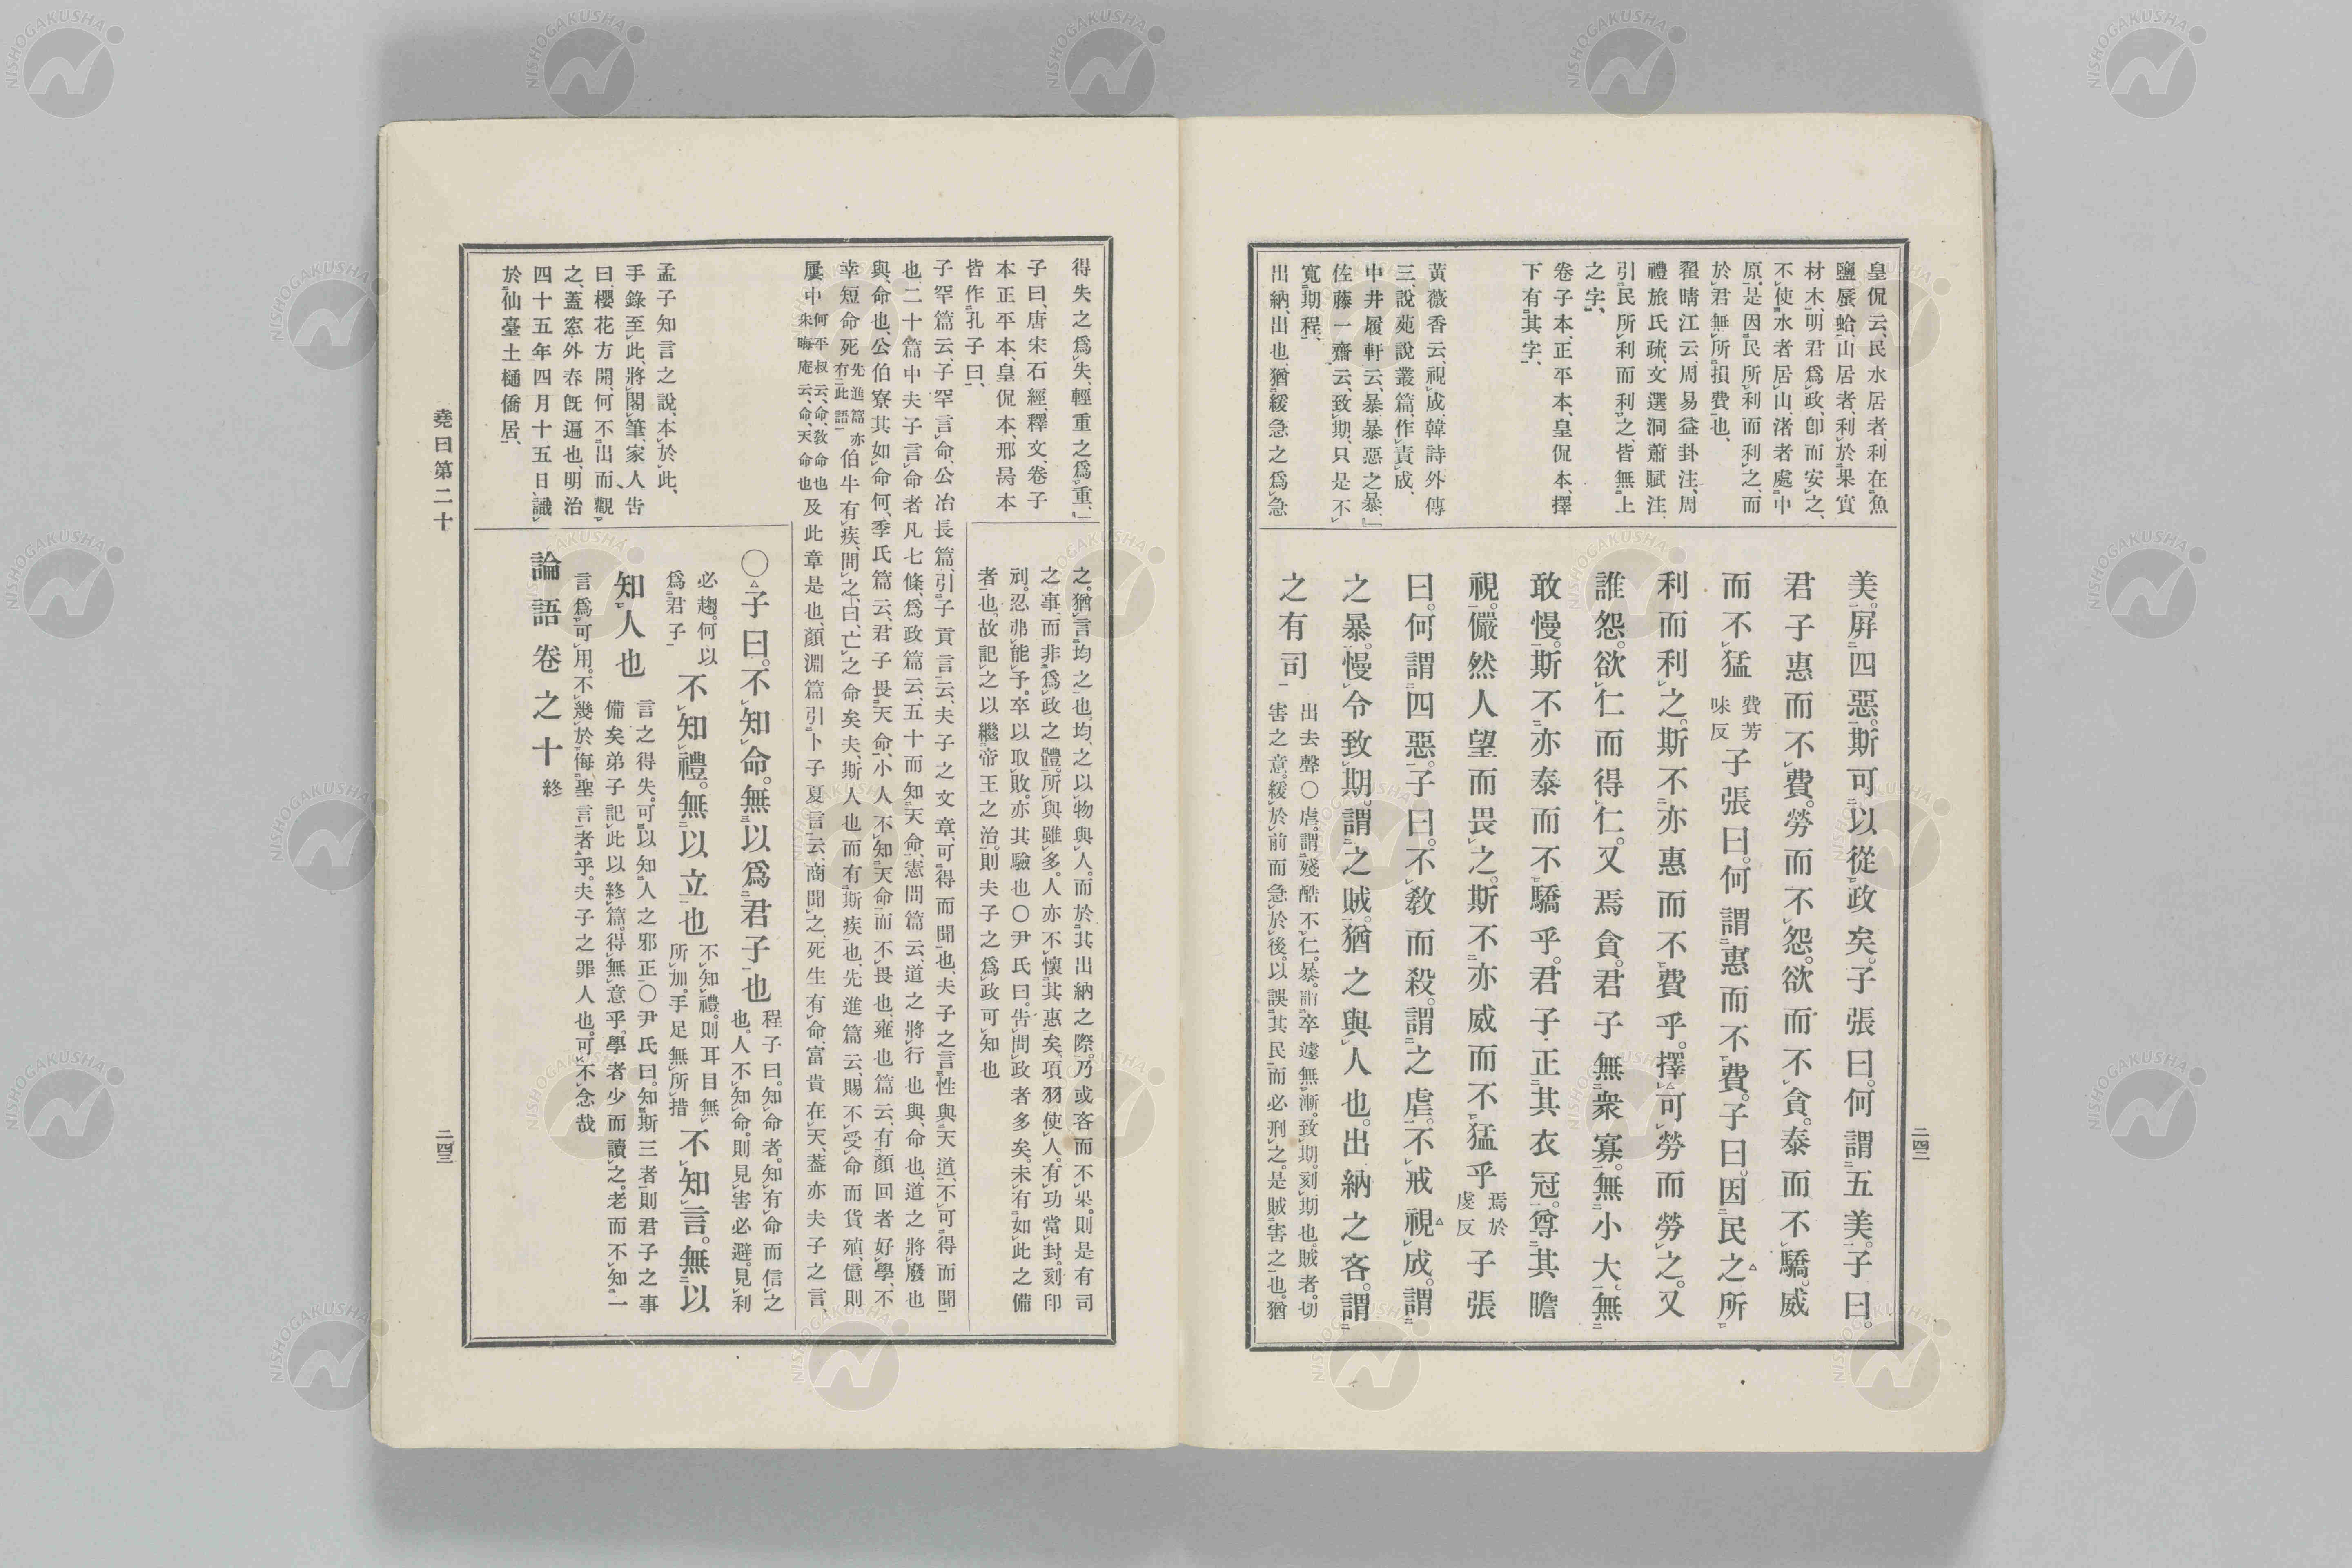 皇侃云、民水居者、利在魚
鹽蜃蛤、山居者、利於果實
材木、明君爲政、卽而安之、
不使水者居山、渚者處中
原、是因民所利而利之、而
於君無所損費也、
翟晴江云、周易益卦注、周
禮旅氏疏、文選洞蕭賦注、
引民所利而利之、皆無上
之字、
卷子本、正平本、皇侃本、擇
下有其字、
黃薇香云、視成、韓詩外傳
三、說苑說叢篇、作責成、
中井履軒云、暴暴惡之暴、
佐藤一齋云、致期、只是不
寬期程、
出納、出也、猶緩急之爲急
美。屛四惡。斯可以從政矣。子張曰。何謂五美。子曰。
君子惠而不費。勞而不怨。欲而不貪。泰而不驕。威
而不猛
費芳
味反
子張曰。何謂惠而不費。子曰。因民之所
利而利之。斯不亦惠而不費乎。擇可勞而勞之。又
誰怨。欲仁而得仁。又焉貪。君子無衆寡。無小大。無
敢慢。斯不亦泰而不驕乎。君子正其衣冠。尊其瞻
視。儼然人望而畏之。斯不亦威而不猛乎
焉於
虔反
子張
曰。何謂四惡。子曰。不敎而殺。謂之虐。不戒視成。謂
之暴。慢令致期。謂之賊。猶之與人也。出納之吝。謂
之有司
出去聲○虐。謂殘酷不仁。暴。謂卒遽無漸。致期。刻期也。賊者。切
害之意。緩於前而急於後。以誤其民。而必刑之。是賊害之也。猶
二四二
得失之爲失、輕重之爲重、
子曰、唐宋石經、釋文、卷子
本正平本、皇侃本、邢昺本
皆作孔子曰、
之。猶言均之也。均之以物與人。而於其出納之際。乃或吝而不果。則是有司
之事。而非爲政之體。所與雖多。人亦不懷其惠矣。項羽使人。有功當封。刻印
刓。忍弗能予。卒以取敗。亦其驗也○尹氏曰。告問政者多矣。未有如此之備
者也。故記之以繼帝王之治。則夫子之爲政可知也
子罕篇云、子罕言命、公冶長篇、引子貢言云、夫子之文章、可得而聞也、夫子之言性與天道、不可得而聞
也、二十篇中夫子言命者凡七條、爲政篇云、五十而知天命、憲問篇云、道之將行也與、命也、道之將廢也
與、命也、公伯寮其如命何、季氏篇云、君子畏天命、小人不知天命而不畏也、雍也篇云、有顏回者好學、不
幸短命死
先進篇亦
有此語
伯牛有疾、問之、曰、亡之命矣夫、斯人也而有斯疾也、先進篇云、賜不受命而貨殖、億則
屢中
何平叔云、命、敎命也
朱晦庵云、命、天命也
及此章是也、顏淵篇引卜子夏言云、商聞之、死生有命、富貴在天、蓋亦夫子之言、
○子曰。不知命。無以爲君子也
程子曰。知命者。知有命而信之
也。人不知命。則見害必避。見利
必趨。何以
爲君子
不知禮。無以立也
不知禮。則耳目無
所加。手足無所措
不知言。無以
知人也
言之得失。可以知人之邪正○尹氏曰。知斯三者。則君子之事
備矣。弟子記此以終篇。得無意乎。學者少而讀之。老而不知一
言爲可用。不幾於侮聖言者乎。夫子之罪人也。可不念哉
孟子知言之說、本於此、
手錄至此、將閣筆、家人告
曰、櫻花方開、何不出而觀
之、蓋窓外春旣遍也、明治
四十五年四月十五日、識
於仙臺土樋僑居、
論語卷之十 終
堯曰第二十
二四三